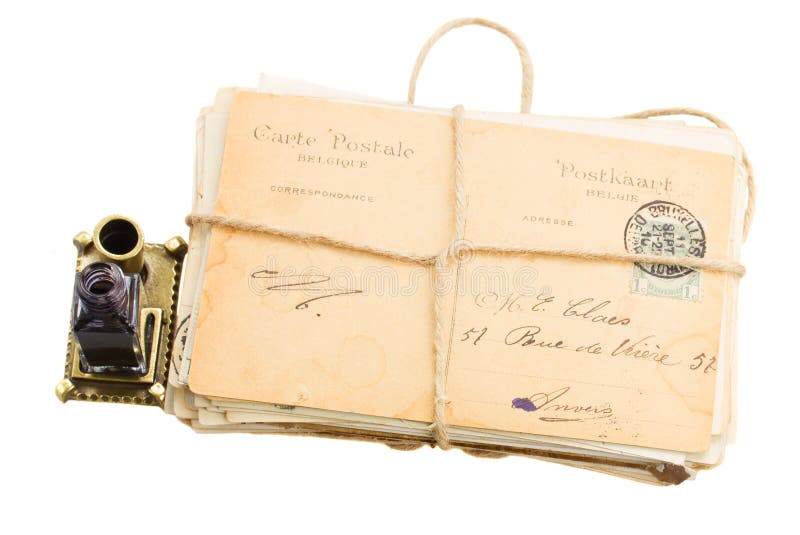 Carte Postale
BELGIQUE
CORRESPONDANCE
Postkaart
BELGIE
ADRESSE
BRUXELLES
11
SEPT
21-22
10
1c 1c
M. E. Claes
57 Rue de 57
Anvers